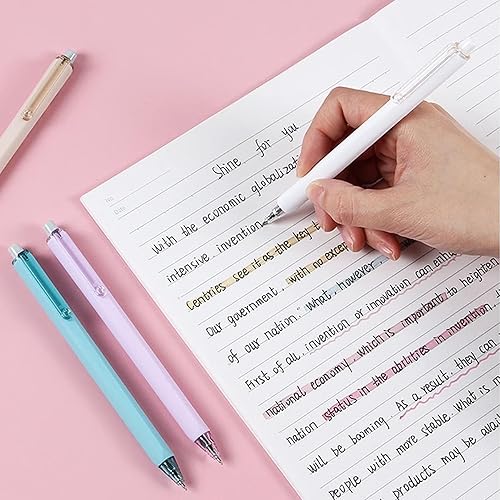 Shine for you
With the economic globalizati
intensive invention
Centries see it as the key t
Our government, with no excep
of our nation. What, however
First of all, invention or innovation can enha
national economy, which is important to heighten
nation status in the abilities in invention,
will be booming. As a result, they can
people with more stable. What is
products may be avai